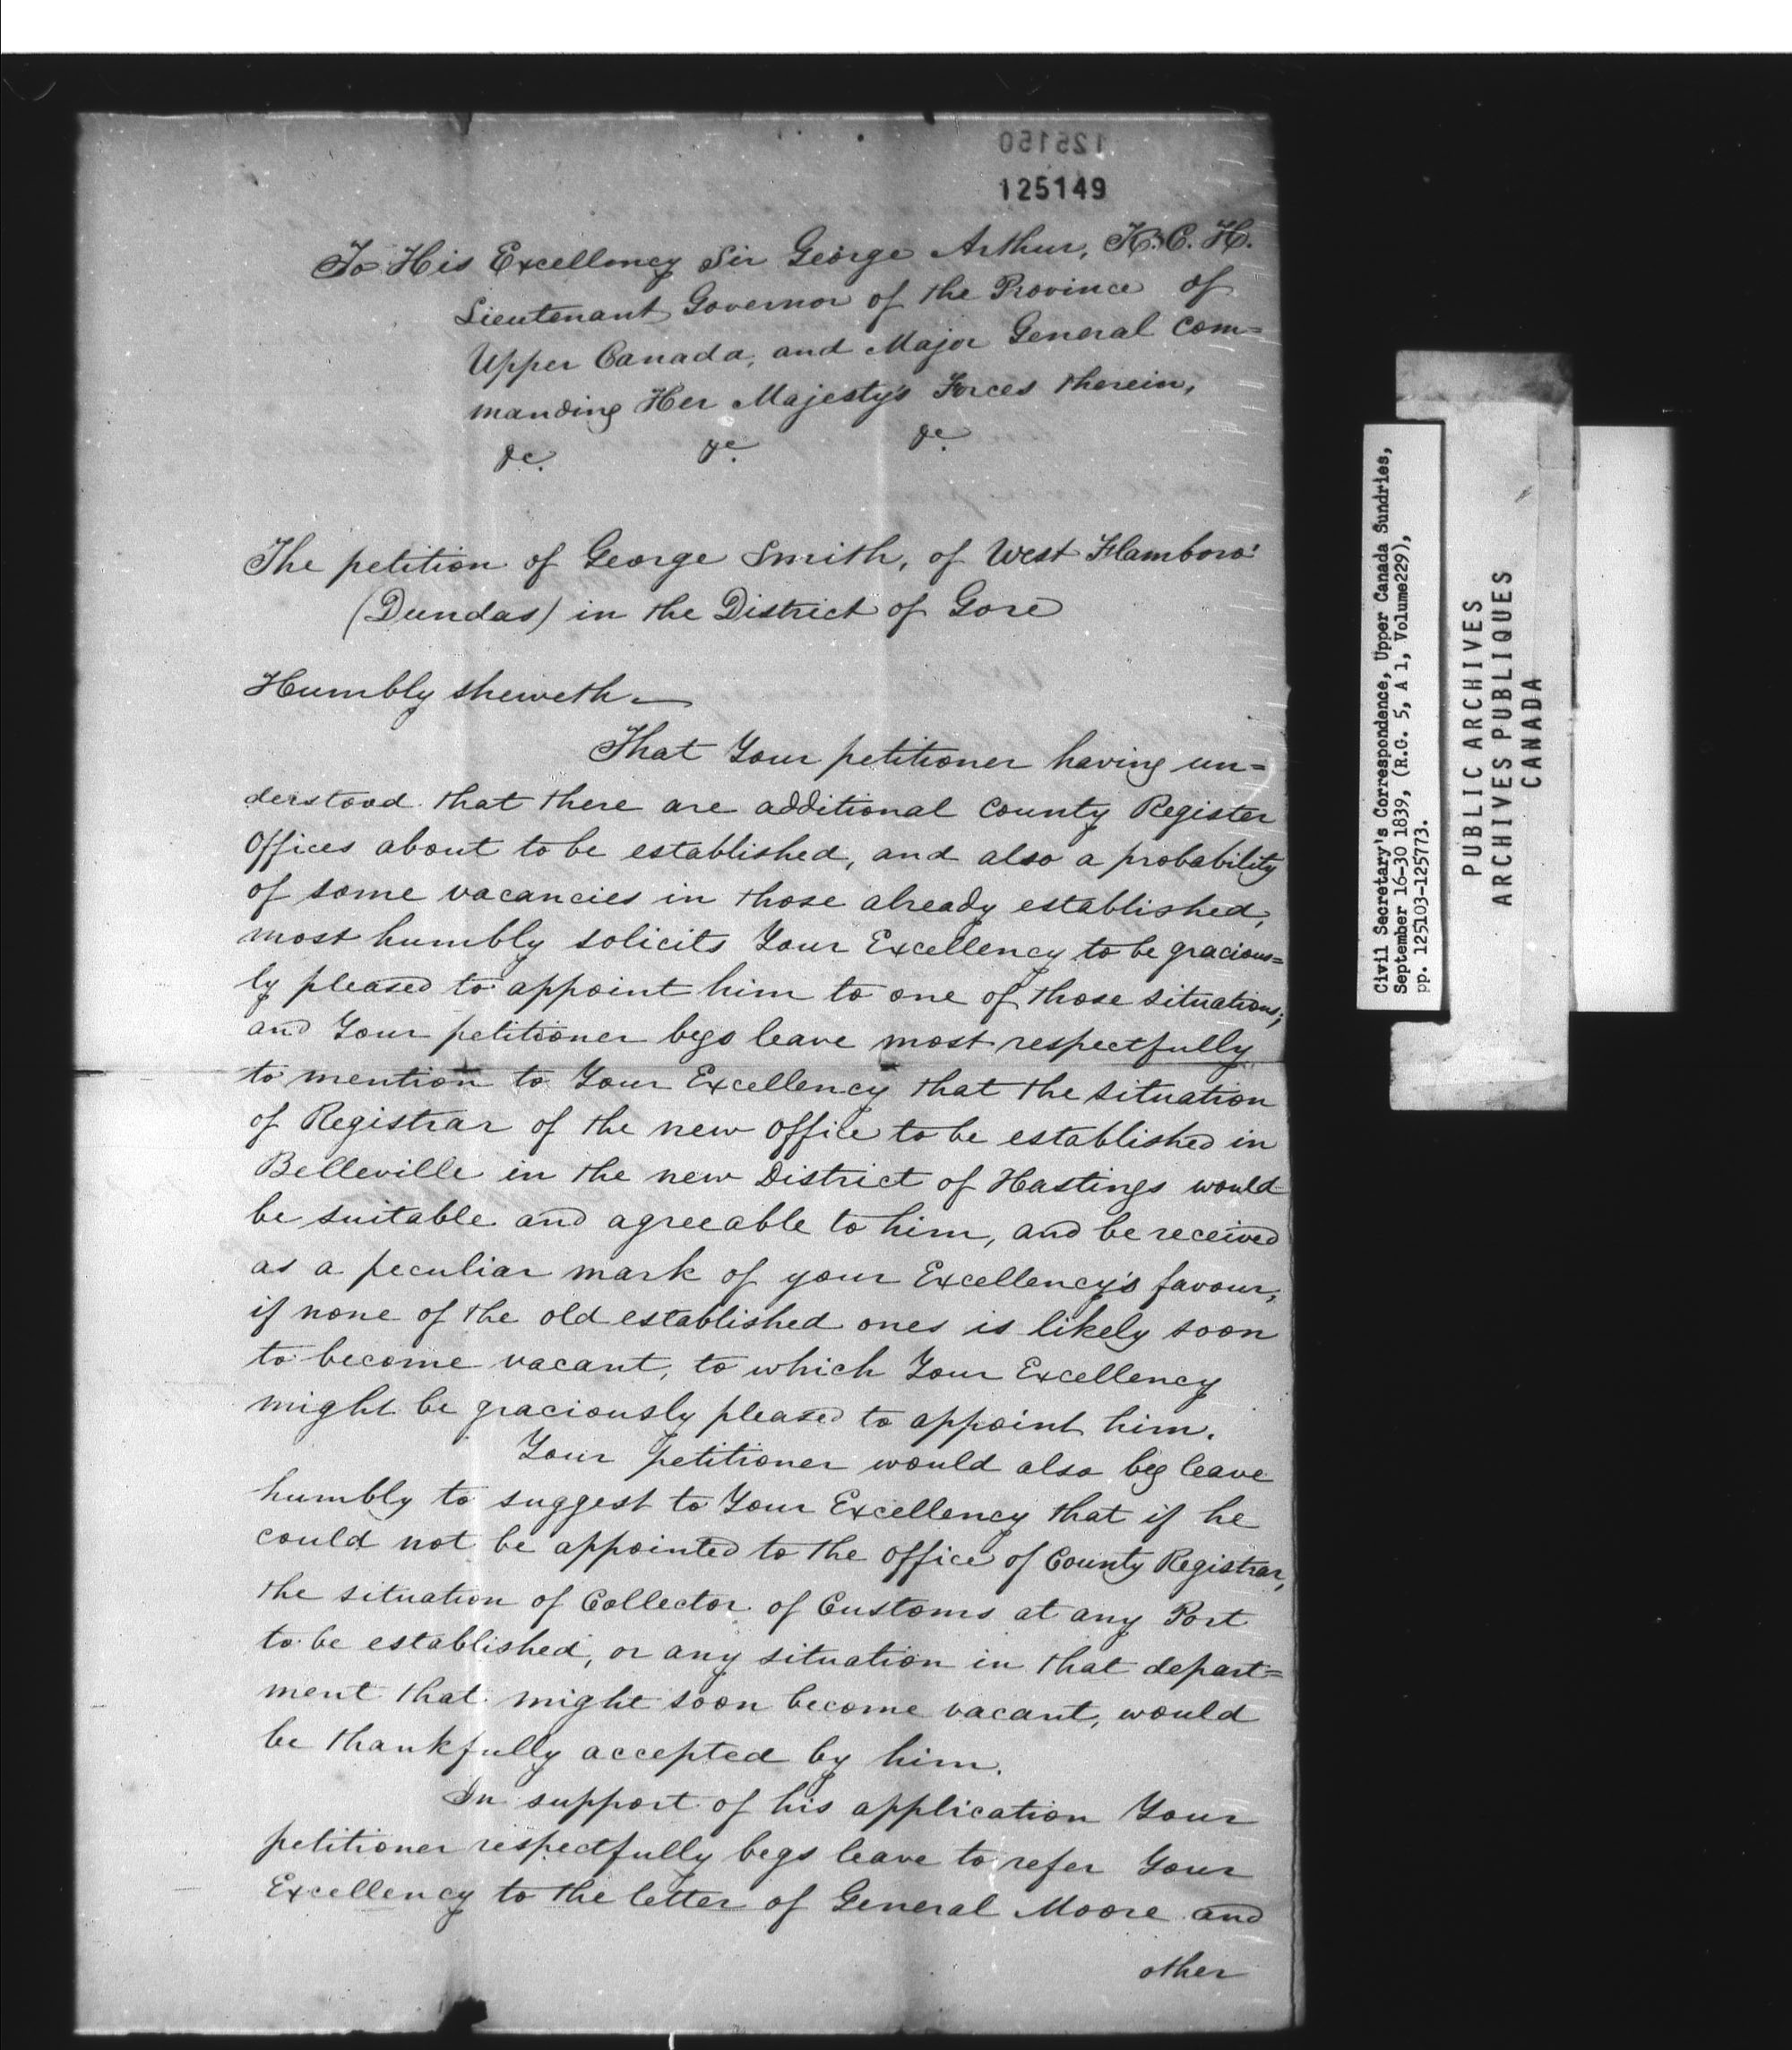 125150
125149
To His Excellency Sir George Arthur, K.C.H.
Lieutenant Governor of the Province of
Upper Canada, and Major General Com=
manding Her Majesty's Forces therein,
&c. &c. &c.
The petition of George Smith, of West Flamboro'
(Dundas) in the District of Gore
Humbly sheweth—
That Your petitioner having un=
derstood that there are additional County Register
Offices about to be established, and also a probability
of some vacancies in those already established,
most humbly solicits Your Excellency to be gracious=
ly pleased to appoint him to one of those situations;
and Your petitioner begs leave most respectfully
to mention to Your Excellency that the situation
of Registrar of the new office to be established in
Belleville in the new District of Hastings would
be suitable and agreeable to him, and be received
as a peculiar mark of your Excellency's favour,
if none of the old established ones is likely soon
to become vacant, to which Your Excellency
might be graciously pleased to appoint him.
Your petitioner would also beg leave
humbly to suggest to Your Excellency that if he
could not be appointed to the office of County Registrar,
the situation of Collector of Customs at any Port
to be established, or any situation in that depart=
ment that might soon become vacant, would
be thankfully accepted by him.
In support of his application Your
petitioner respectfully begs leave to refer Your
Excellency to the letter of General Moore and
other
Civil Secretary's Correspondence, Upper Canada Sundries,
September 16-30 1839, (R.G. 5, A 1, Volume229),
pp. 125103-125773.
PUBLIC ARCHIVES
ARCHIVES PUBLIQUES
CANADA